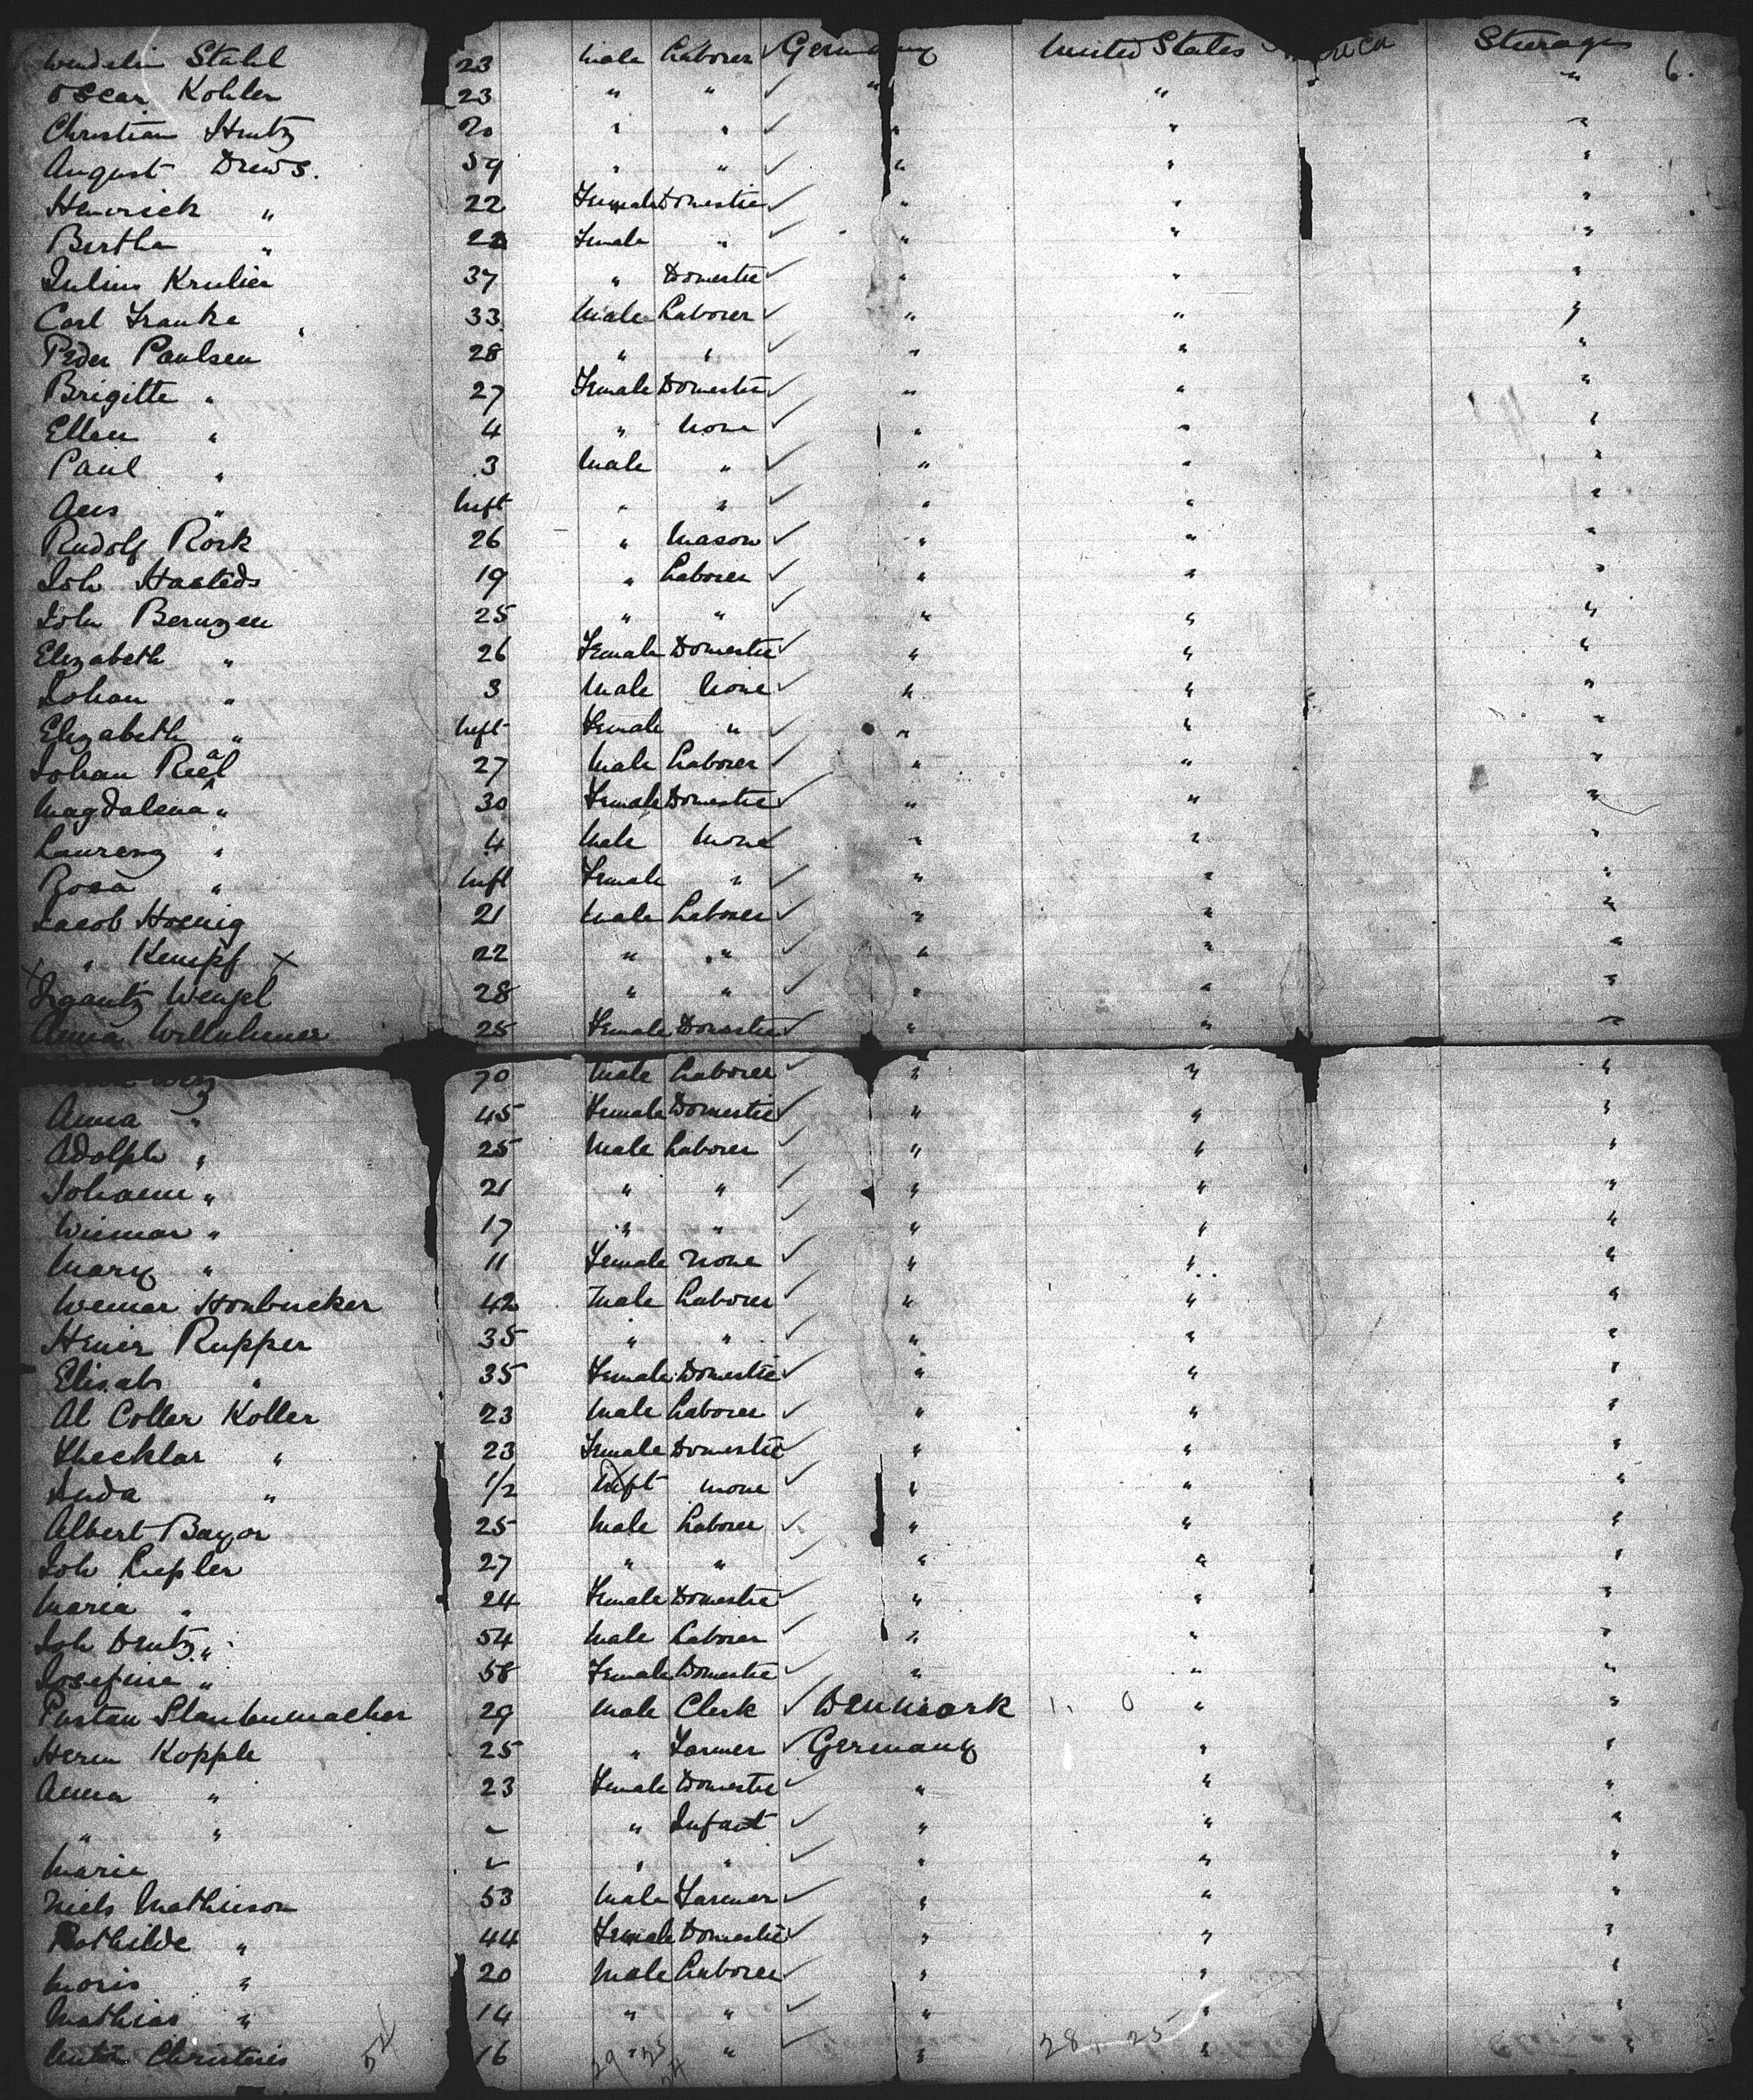 Wendelin Stahl 23 Male Laborer ✓ Germany United States Steerage 6.
Oscar Kohler 23 " " ✓ " " "
Christian Hentz 20 " " ✓ " " "
August Drews. 59 " " ✓ " " "
Henrich " 22 Female Domestic ✓ " " "
Bertha " 22 Female " ✓ " " "
Julius Krulier 37 " Domestic ✓ " " "
Carl Franke 33 Male Laborer ✓ " " "
Peder Paulsen 28 " " ✓ " " "
Brigitte " 27 Female Domestic ✓ " " "
Ellen " 4 " None ✓ " " "
Paul " 3 Male " ✓ " " "
" Inft " " ✓ " " "
Rudolf Rork 26 " Mason ✓ " " "
Joh Hasteds 19 " Laborer ✓ " " "
John Bernzen 25 " " ✓ " " "
Elizabeth " 26 Female Domestic ✓ " " "
Johan " 3 Male None ✓ " " "
Elizabeth " Inft Female " ✓ " " "
Johan Rieal 27 Male Laborer ✓ " " "
Magdalena " 30 Female Domestic ✓ " " "
Laurenz " 4 Male None " " "
Rosa " Inft Female " ✓ " " "
Jacob Hoenig 21 Male Laborer ✓ " " "
" Kempf x 22 " " ✓ " " "
Wenzel 28 " " ✓ " " "
Anna 25 Female Domestic ✓ " " "
70 Male Laborer ✓ " " "
Anna " 45 Female Domestic ✓ " " "
Adolph " 25 Male Laborer ✓ " " "
Johann " 21 " " ✓ " " "
Wiemar " 17 " " ✓ " " "
Mary " 11 Female None ✓ " " "
Wemar Honbucker 42 Male Laborer ✓ " " "
Hener Rupper 35 " " ✓ " " "
Elisab " 35 Female Domestic ✓ " " "
Al Coller Koller 23 Male Laborer ✓ " " "
Thecklar " 23 Female Domestic ✓ " " "
Luda " 1/2 Inft None ✓ " " "
Albert Bayor 25 Male Laborer ✓ " " "
Joh Kepler 27 " " ✓ " " "
Maria " 24 Female Domestic ✓ " " "
Joh Dentz " 54 Male Laborer ✓ " " "
Josefine " 58 Female Domestic ✓ " " "
29 Male Clerk ✓ Denmark " "
Herm Kopple 25 " Farmer ✓ Germany " "
Anna " 23 Female Domestic ✓ " " "
" " - " Infant ✓ " " "
Marie " " ✓ " " "
Niels Mathieson 53 Male Farmer ✓ " " "
Bothilde " 44 Female Domestic ✓ " " "
Moris " 20 Male Laborer ✓ " " "
Mathias " 14 " " ✓ " " "
Christenis 16 " " ✓ " " "